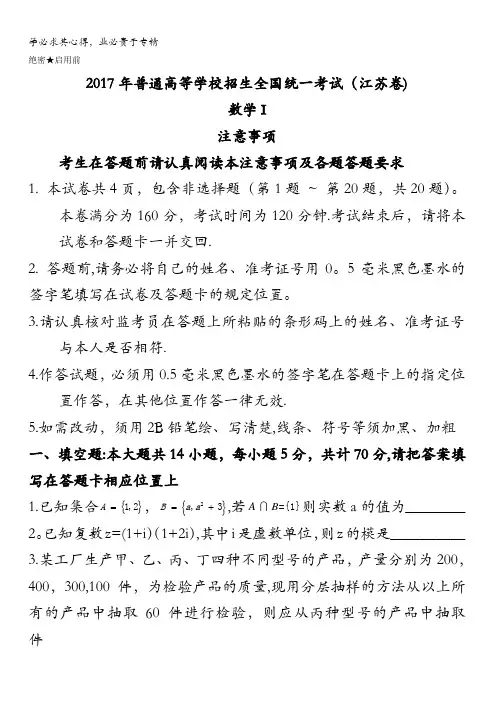 学必求其心得，业必贵于专精
绝密★启用前
2017年普通高等学校招生全国统一考试（江苏卷)
数学I
注意事项
考生在答题前请认真阅读本注意事项及各题答题要求
1. 本试卷共4页，包含非选择题（第1题 ~ 第20题，共20题）。
本卷满分为160分，考试时间为120分钟.考试结束后，请将本
试卷和答题卡一并交回.
2. 答题前,请务必将自己的姓名、准考证号用0。5毫米黑色墨水的
签字笔填写在试卷及答题卡的规定位置。
3.请认真核对监考员在答题上所粘贴的条形码上的姓名、准考证号
与本人是否相符.
4.作答试题，必须用0.5毫米黑色墨水的签字笔在答题卡上的指定位
置作答，在其他位置作答一律无效.
5.如需改动，须用2B铅笔绘、写清楚,线条、符号等须加黑、加粗
一、填空题:本大题共14小题，每小题5分，共计70分,请把答案填
写在答题卡相应位置上
1.已知集合A＝{1,2}，B＝{a,a²＋3},若A∩B={1}则实数a的值为________
2。已知复数z=(1+i)(1+2i),其中i是虚数单位，则z的模是__________
3.某工厂生产甲、乙、丙、丁四种不同型号的产品，产量分别为200，
400，300,100件，为检验产品的质量,现用分层抽样的方法从以上所
有的产品中抽取60件进行检验，则应从丙种型号的产品中抽取
件